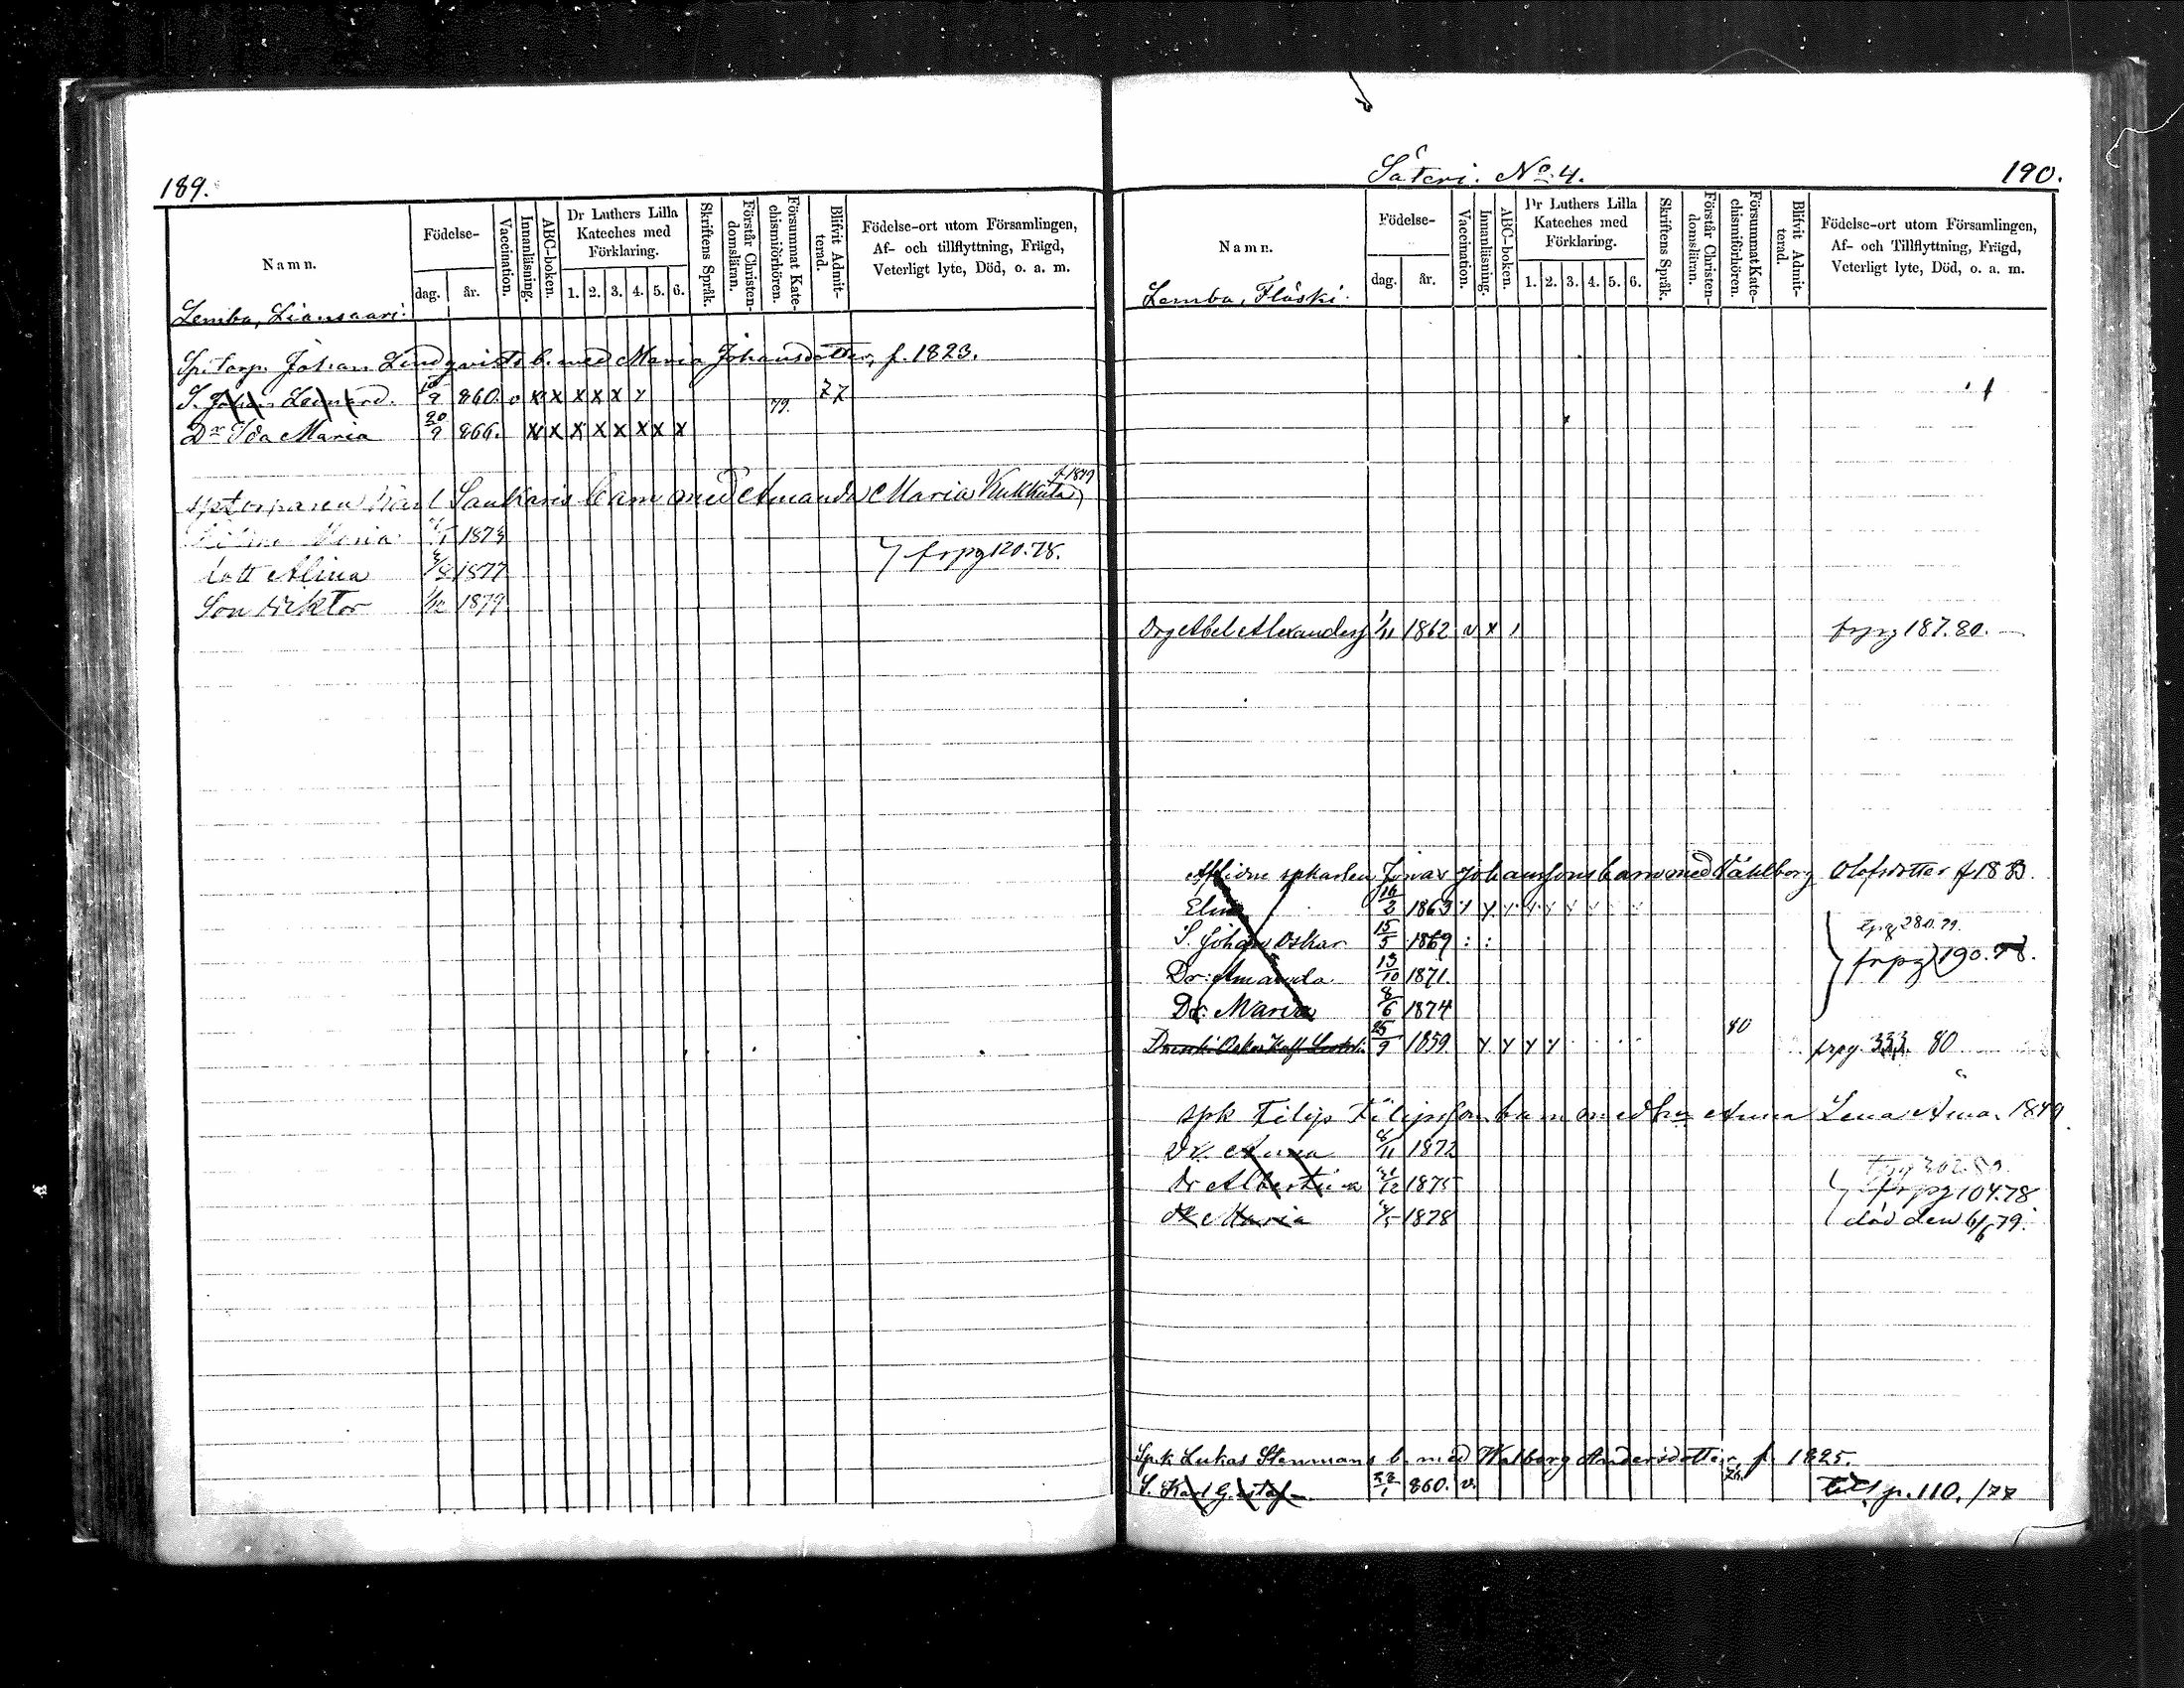 189.
Namn.
Födelse-
dag.
år.
Vaccination.
Innanläsning.
ABC-boken.
Dr Luthers Lilla Kateches med Förklaring.
1. 2. 3. 4. 5. 6.
Skriftens Språk.
Förstår Christen-domsläran.
Försummat Kate-chismiförhören.
Blifvit Admit-terad.
Födelse-ort utom Församlingen,
Af- och tillflyttning, Frägd,
Veterligt lyte, Död, o. a. m.
Lemba, Liansaari.
Sp. torp. Johan Lindqvists b. med Maria Johansdotter, f. 1823.
S. Johan Leonard. 9 860. v x x x x x 77
79.
Dr Ida Maria 20/9 866. x x x x x x x x
sptorparen Karl Saukaris barn med Amanda Maria Kukkula f 1849
Maria 1873
frpg 120.78.
dott Alina 1877
Son Viktor 1/12 1879
Säteri. No 4.
190.
Namn.
Födelse-
dag.
år.
Vaccination.
Innanläsning.
ABC-boken.
Dr Luthers Lilla Kateches med Förklaring.
1. 2. 3. 4. 5. 6.
Skriftens Språk.
Förstår Christen-domsläran.
Försummat Kate-chismiförhören.
Blifvit Admit-terad.
Födelse-ort utom Församlingen,
Af- och Tillflyttning, Frägd,
Veterligt lyte, Död, o. a. m.
Lemba, Fläski.
Drg Abel Alexandersf 1/11 1862 v x frpg 187.80.
Aflidne spkarlen Jonas Johanssons barn med Vahlborg Olofsdotter f 18
Elin 16/2 1863
280.79.
S. Johan Oskar 15/5 1869
frpg 190.78.
Dr: Amanda 13/10 1871.
Dr: Maria 8/6 1874
80
Oskar 25/9 1859. frpg. 333. 80
spk Filip Filipsson barn med hu Anna Lena 1849
Dr. Anna 8/11 1872
302.80.
Dr Albertina 1875
frpg 104.78
dr Maria 1878 död den 6/6 79.
Spk Lukas Stenmans b. med Walborg Andersdotter, f. 1825.
S. Karl Gustaf 860. v. p. 110. /77